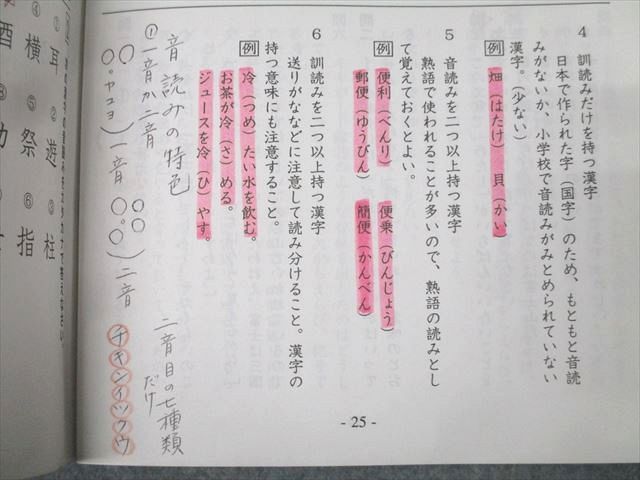 4 訓読みだけを持つ漢字
日本で作られた字（国字）のため、もともと音読
みがないか、小学校で音読みがみとめられていない
漢字。（少ない）
例 畑（はたけ） 貝（かい）
5 音読みを二つ以上持つ漢字
熟語で使われることが多いので、熟語の読みとし
て覚えておくとよい。
例 便利（べんり） 便乗（びんじょう）
郵便（ゆうびん） 簡便（かんべん）
6 訓読みを二つ以上持つ漢字
送りがななどに注意して読み分けること。漢字の
持つ意味にも注意すること。
例 冷（つめ）たい水を飲む。
お茶が冷（さ）める。
ジュースを冷（ひ）やす。
音読みの特色
①一音か二音
二音目の七種類
だけ
○○。ヤユヨ）一音
○○○）二音
チキンイツクウ
- 25 -
①耳 ②遊 ③柱
④横 ⑤祭 ⑥指